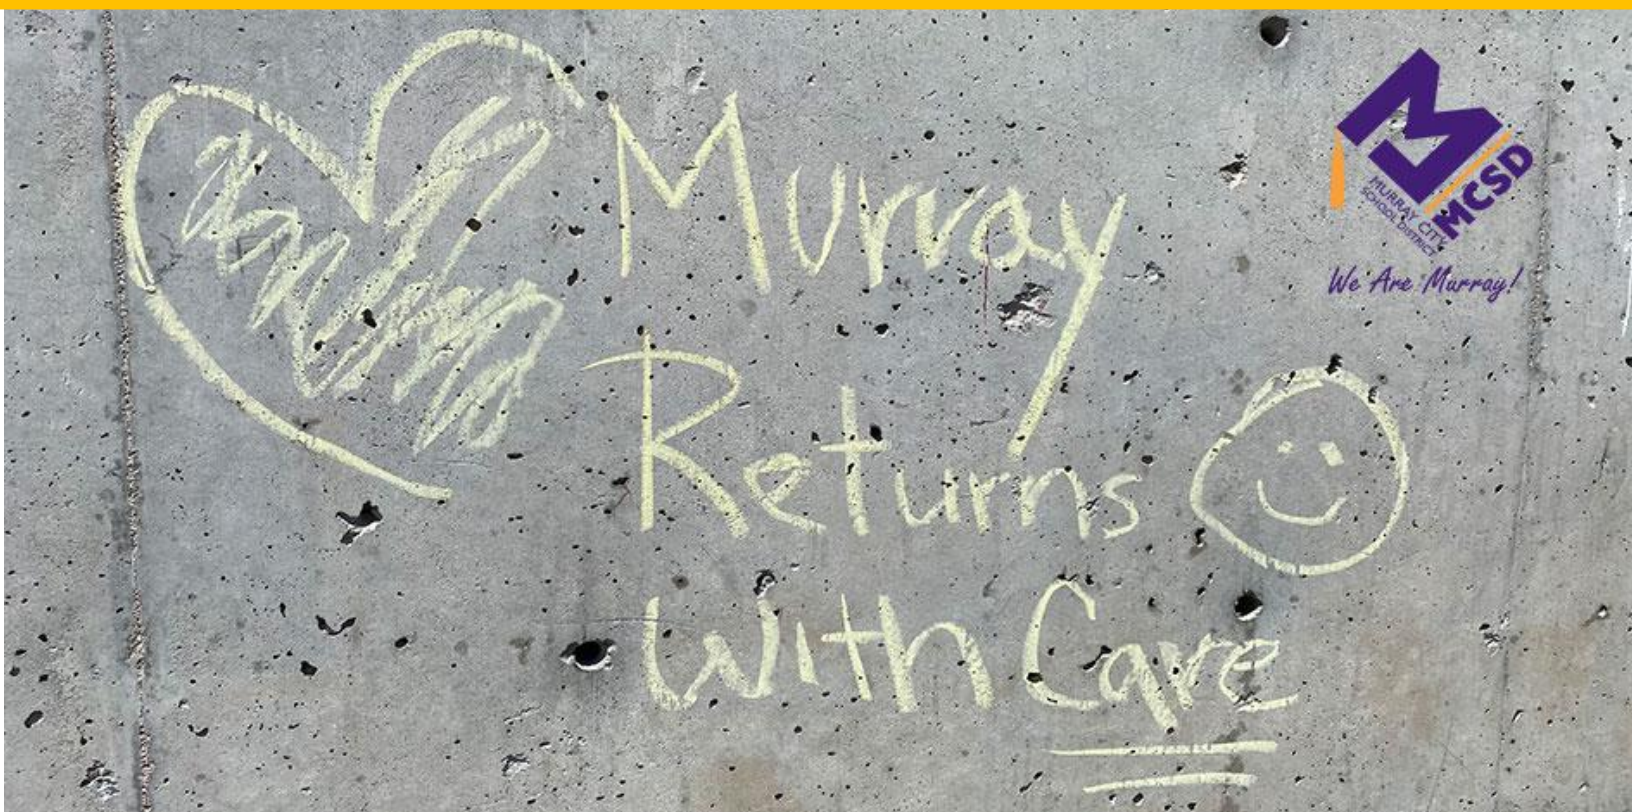 Murray
Returns
With Care
MURRAY CITY
SCHOOL DISTRICT
MCSD
We Are Murray!